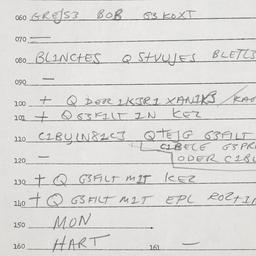 060 GREJS3 BOB G3KOXT
070 —
080 BL1NCTES Q StVUJES BLETC3
090 —
100 + Q DER 1K3R1 XAN1K3 / KAG
101 + Q G3F1LT IN KEZ
110 C1BULN82C3 QTEJG G3F1LT
C1BELE G3PR
120 — ODER C1BU
130 + Q G3FILT M1T KEZ
140 + Q G3FILT M1T EPL ROZ+I
150 MON
160 HART 161 —